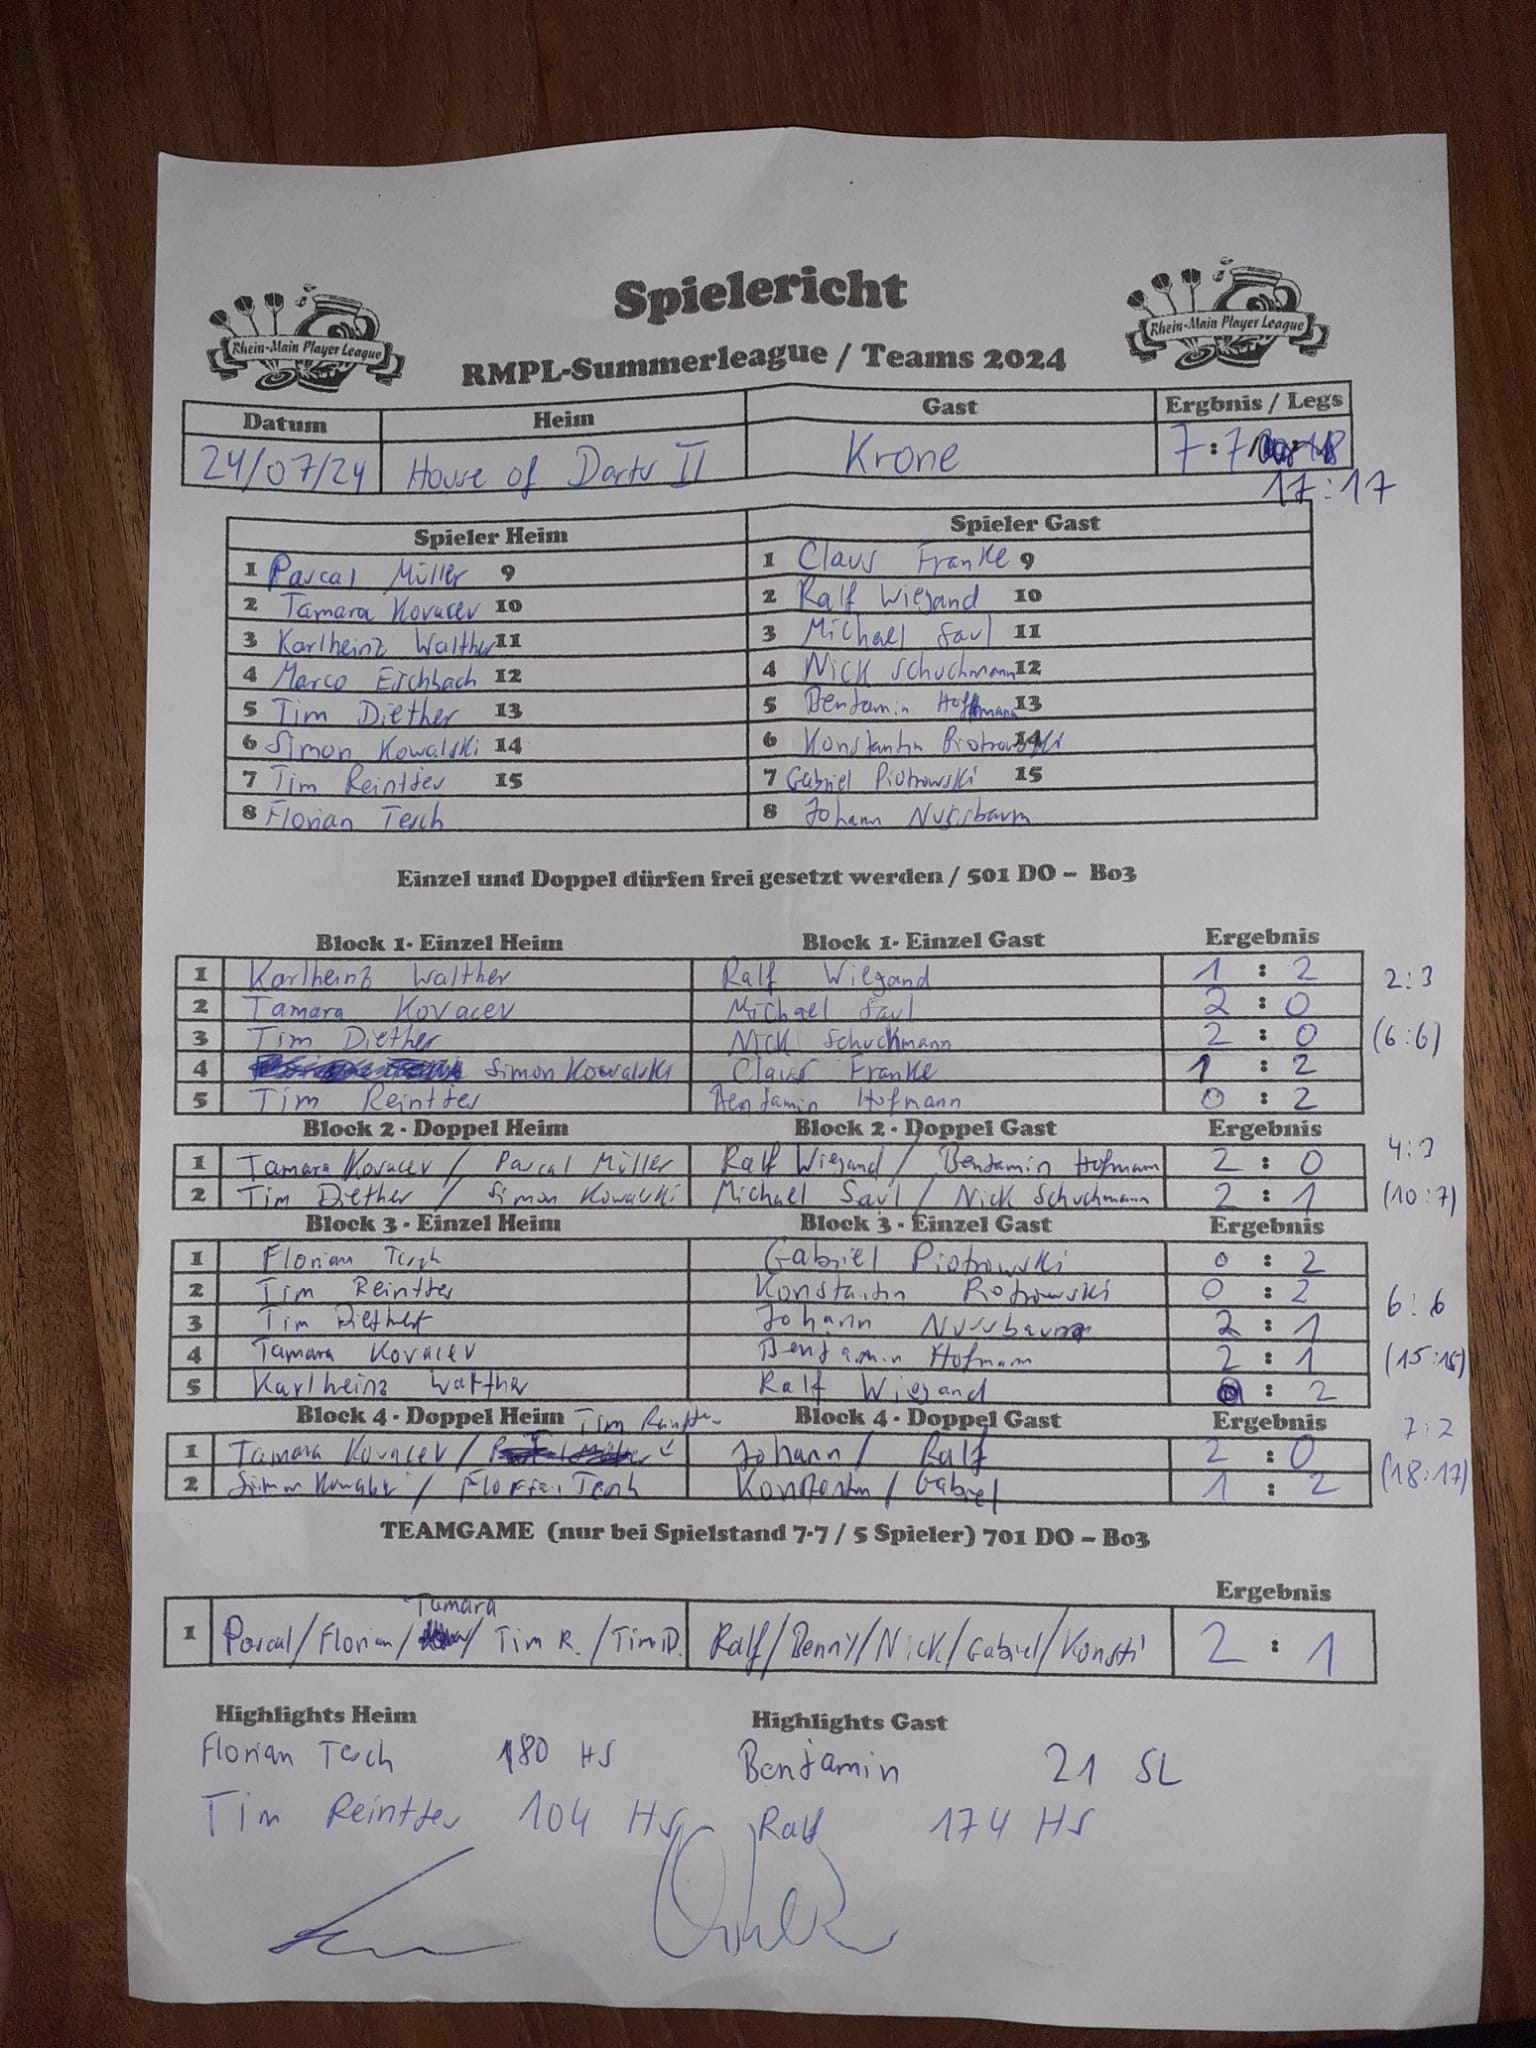 Spielericht
Rhein-Main Player League
Rhein-Main Player League
RMPL-Summerleague / Teams 2024
Datum Heim Gast Ergbnis / Legs
24/07/24 House of Darts II Krone 7:7
17:17
Spieler Heim Spieler Gast
1 Pascal Müller 9 1 Claus Franke 9
2 Tamara Kovacev 10 2 Ralf Wiegand 10
3 Karlheinz Walther 11 3 Michael Saul 11
4 Marco Eschbach 12 4 Nick Schuchmann 12
5 Tim Diether 13 5 Benjamin Hoffmann 13
6 Simon Kowalski 14 6 Konstantin Piotrowski 14
7 Tim Reintjes 15 7 Gabriel Piotrowski 15
8 Florian Tesch 8 Johann Nussbaum
Einzel und Doppel dürfen frei gesetzt werden / 501 DO – Bo3
Block 1- Einzel Heim Block 1- Einzel Gast Ergebnis
1 Karlheinz Walther Ralf Wiegand 1 : 2 2:3
2 Tamara Kovacev Michael Saul 2 : 0
3 Tim Diether Nick Schuchmann 2 : 0 (6:6)
4 Simon Kowalski Claus Franke 1 : 2
5 Tim Reintjes Benjamin Hofmann 0 : 2
Block 2 - Doppel Heim Block 2 - Doppel Gast Ergebnis
1 Tamara Kovacev / Pascal Müller Ralf Wiegand / Benjamin Hofmann 2 : 0 4:3
2 Tim Diether / Simon Kowalski Michael Saul / Nick Schuchmann 2 : 1 (10:7)
Block 3 - Einzel Heim Block 3 - Einzel Gast Ergebnis
1 Florian Tesch Gabriel Piotrowski 0 : 2
2 Tim Reintjes Konstantin Piotrowski 0 : 2 6:6
3 Tim Diether Johann Nussbaum 2 : 1
4 Tamara Kovacev Benjamin Hofmann 2 : 1
5 Karlheinz Walther Ralf Wiegand 0 : 2
Block 4 - Doppel Heim Tim Reintjes Block 4 - Doppel Gast Ergebnis
1 Tamara Kovacev / Johann / Ralf 2 : 0
2 Simon Kowalski / Florian Tesch Konstantin / Gabriel 1 : 2 (18:17)
TEAMGAME (nur bei Spielstand 7-7 / 5 Spieler) 701 DO – Bo3
Ergebnis
Tamara
1 Pascal / Florian / / Tim R. / Tim D. Ralf / Benny / Nick / Gabriel / Konsti 2 : 1
Highlights Heim Highlights Gast
Florian Tesch 180 HS Benjamin 21 SL
Tim Reintjes 104 HS Ralf 174 HS